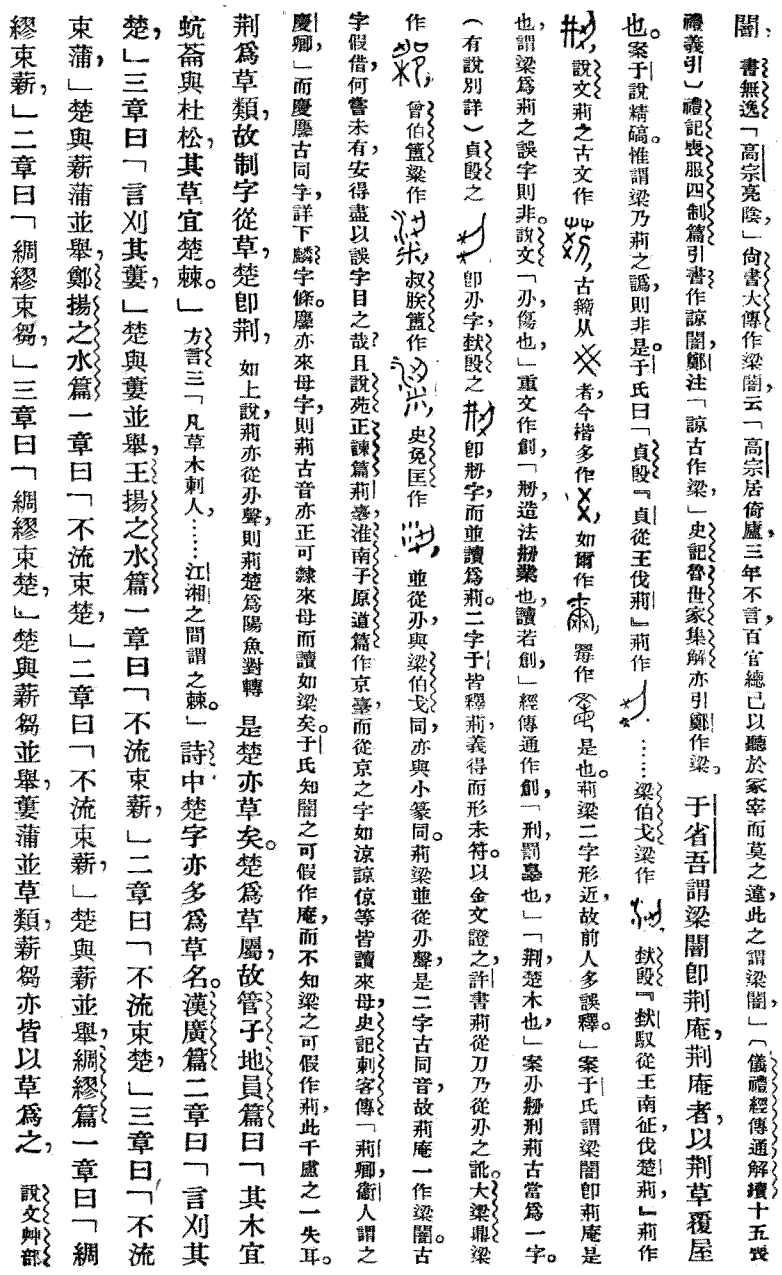 闇，書無逸「高宗亮陰」尙書大傳作梁闇，云「高宗居倚廬，三年不言，百官總己以聽於冢宰而莫之違，此之謂梁闇，」（儀禮經傳通解續十五喪
禮義引）禮記喪服四制篇引書作諒闇，鄭注「諒古作梁，」史記魯世家集解亦引鄭作梁。于省吾謂梁闇卽荆庵，荆庵者，以荆草覆屋
也。案于說精碻。惟謂梁乃荊之譌，則非是。于氏曰「貞𣪘『貞從王伐荊』荊作……梁伯戈梁作 㹜𣪘『㹜馭從王南征伐楚荊，』荊作
說文荊之古文作 古籀从 者，今楷多作 如爾作 作 是也。荊梁二字形近，故前人多誤釋。」案于氏謂梁闇卽荊庵是
也，謂梁爲荊之誤字則非。說文「刅，傷也，」重文作創，「刱，造法刱業也，讀若創，」經傳通作創，「刑，罰辠也，」「荊，楚木也，」案刅刱刑荊古當爲一字。
（有說別詳）貞𣪘之 卽刅字，㹜𣪘之 卽刱字，而並讀爲荊。二字于皆釋荊，義得而形未符。以金文證之，許書荊從刀乃從刅之訛。大梁鼎梁
作 曾伯簠粱作 叔朕簠作 史免匡作 並從刅，與梁伯戈同，亦與小篆同。荊梁並從刅聲，是二字古同音，故荊庵一作梁闇。古
字假借，何嘗未有，安得盡以誤字目之哉？且說苑正諫篇荊臺，淮南子原道篇作京臺，而從京之字如涼諒倞等皆讀來母，史記刺客傳「荊卿，衞人謂之
慶卿，」而慶麐古同字，詳下麟字條。麐亦來母字，則荊古音亦正可隸來母而讀如梁矣。于氏知闇之可假作庵，而不知梁之可假作荊，此千慮之一失耳。
荆爲草類，故制字從草，楚卽荆，如上說荊亦從刅聲，則荊楚爲陽魚對轉 是楚亦草矣。楚爲草屬，故管子地員篇曰「其木宜
蚖菕與杜松，其草宜楚棘。」方言三「凡草木刺人，……江湘之間謂之棘。」詩中楚字亦多爲草名。漢廣篇二章曰「言刈其
楚，」三章曰「言刈其蔞，」楚與蔞並舉，王揚之水篇一章曰「不流束薪，」二章曰「不流束楚，」三章曰「不流
束蒲，」楚與薪蒲並舉，鄭揚之水篇一章曰「不流束楚，」二章曰「不流束薪，」楚與薪並舉，綢繆篇一章曰「綢
繆束薪，」二章曰「綢繆束芻，」三章曰「綢繆束楚，」楚與薪芻並舉，蔞蒲並草類，薪芻亦皆以草爲之，說文艸部